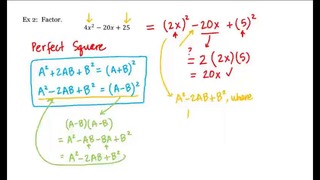 Ex 2: Factor.
4x² − 20x + 25
= (2x)² − 20x + (5)²
Perfect Square
?
= 2(2x)(5)
= 20x ✓
A² + 2AB + B² = (A+B)²
A² − 2AB + B² = (A−B)²
A² − 2AB + B², where
(A−B)(A−B)
= A² − AB − BA + B²
= A² − 2AB + B²